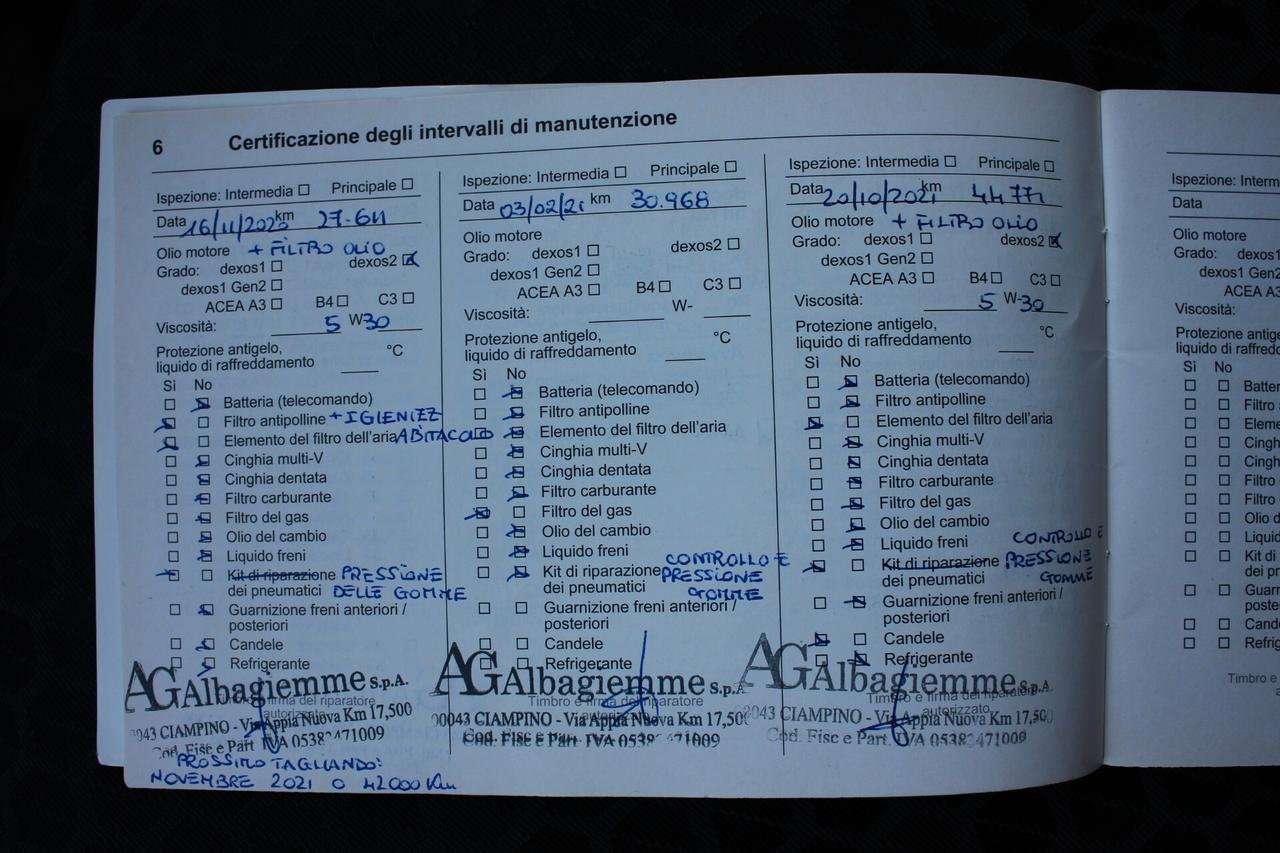 6 Certificazione degli intervalli di manutenzione
Ispezione: Intermedia Principale
Data 16/11/2020 km 27.611
Olio motore + FILTRO OLIO
Grado: dexos1 dexos2
dexos1 Gen2
ACEA A3 B4 C3
Viscosità: 5 W30
Protezione antigelo, °C
liquido di raffreddamento
Sì No
Batteria (telecomando)
Filtro antipolline + IGIENIZZ
Elemento del filtro dell'aria ABITACOLO
Cinghia multi-V
Cinghia dentata
Filtro carburante
Filtro del gas
Olio del cambio
Liquido freni
Kit di riparazione PRESSIONE
dei pneumatici DELLE GOMME
Guarnizione freni anteriori /
posteriori
Candele
Refrigerante
AG Albagiemme S.p.A.
firma del riparatore
autorizzato
00043 CIAMPINO - Via Appia Nuova Km 17,500
Cod. Fisc e Part. IVA 05382471009
PROSSIMO TAGLIANDO:
NOVEMBRE 2021 O 42000 Km
Ispezione: Intermedia Principale
Data 03/02/21 km 30.968
Olio motore
Grado: dexos1 dexos2
dexos1 Gen2
ACEA A3 B4 C3
Viscosità: W-
Protezione antigelo, °C
liquido di raffreddamento
Sì No
Batteria (telecomando)
Filtro antipolline
Elemento del filtro dell'aria
Cinghia multi-V
Cinghia dentata
Filtro carburante
Filtro del gas
Olio del cambio
Liquido freni
Kit di riparazione CONTROLLO E
dei pneumatici PRESSIONE
GOMME
Guarnizione freni anteriori /
posteriori
Candele
Refrigerante
AG Albagiemme S.p.A.
Timbro e firma del riparatore
00043 CIAMPINO - Via Appia Nuova Km 17,500
Cod. Fisc e Part. IVA 0538 471009
Ispezione: Intermedia Principale
Data 20/10/2021 km
Olio motore + FILTRO OLIO
Grado: dexos1 dexos2
dexos1 Gen2
ACEA A3 B4 C3
Viscosità: 5 W-30
Protezione antigelo, °C
liquido di raffreddamento
Sì No
Batteria (telecomando)
Filtro antipolline
Elemento del filtro dell'aria
Cinghia multi-V
Cinghia dentata
Filtro carburante
Filtro del gas
Olio del cambio
Liquido freni CONTROLLO E
Kit di riparazione PRESSIONE
dei pneumatici GOMME
Guarnizione freni anteriori /
posteriori
Candele
Refrigerante
AG Albagiemme S.p.A.
Timbro e firma del riparatore
autorizzato
00043 CIAMPINO - Via Appia Nuova Km 17,500
Cod. Fisc e Part. IVA 05382471009
Ispezione: Interm
Data
Olio motore
Grado: dexos1
dexos1 Gen2
ACEA A3
Viscosità:
Protezione antige
liquido di raffredda
Sì No
Batter
Filtro
Eleme
Cingh
Cingh
Filtro
Filtro
Olio d
Liquid
Kit di
dei pn
Guarn
poste
Cand
Refrig
Timbro e